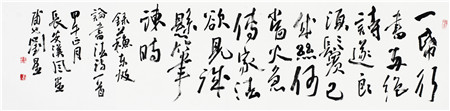 一紙行
書兩絕
詩遂良
須鬢已
成絲何
當火急
傳家法
欲見誠
懸筆
諫時
錄蘇東坡
論書法詩一首
甲午正月
長安溪風
劉